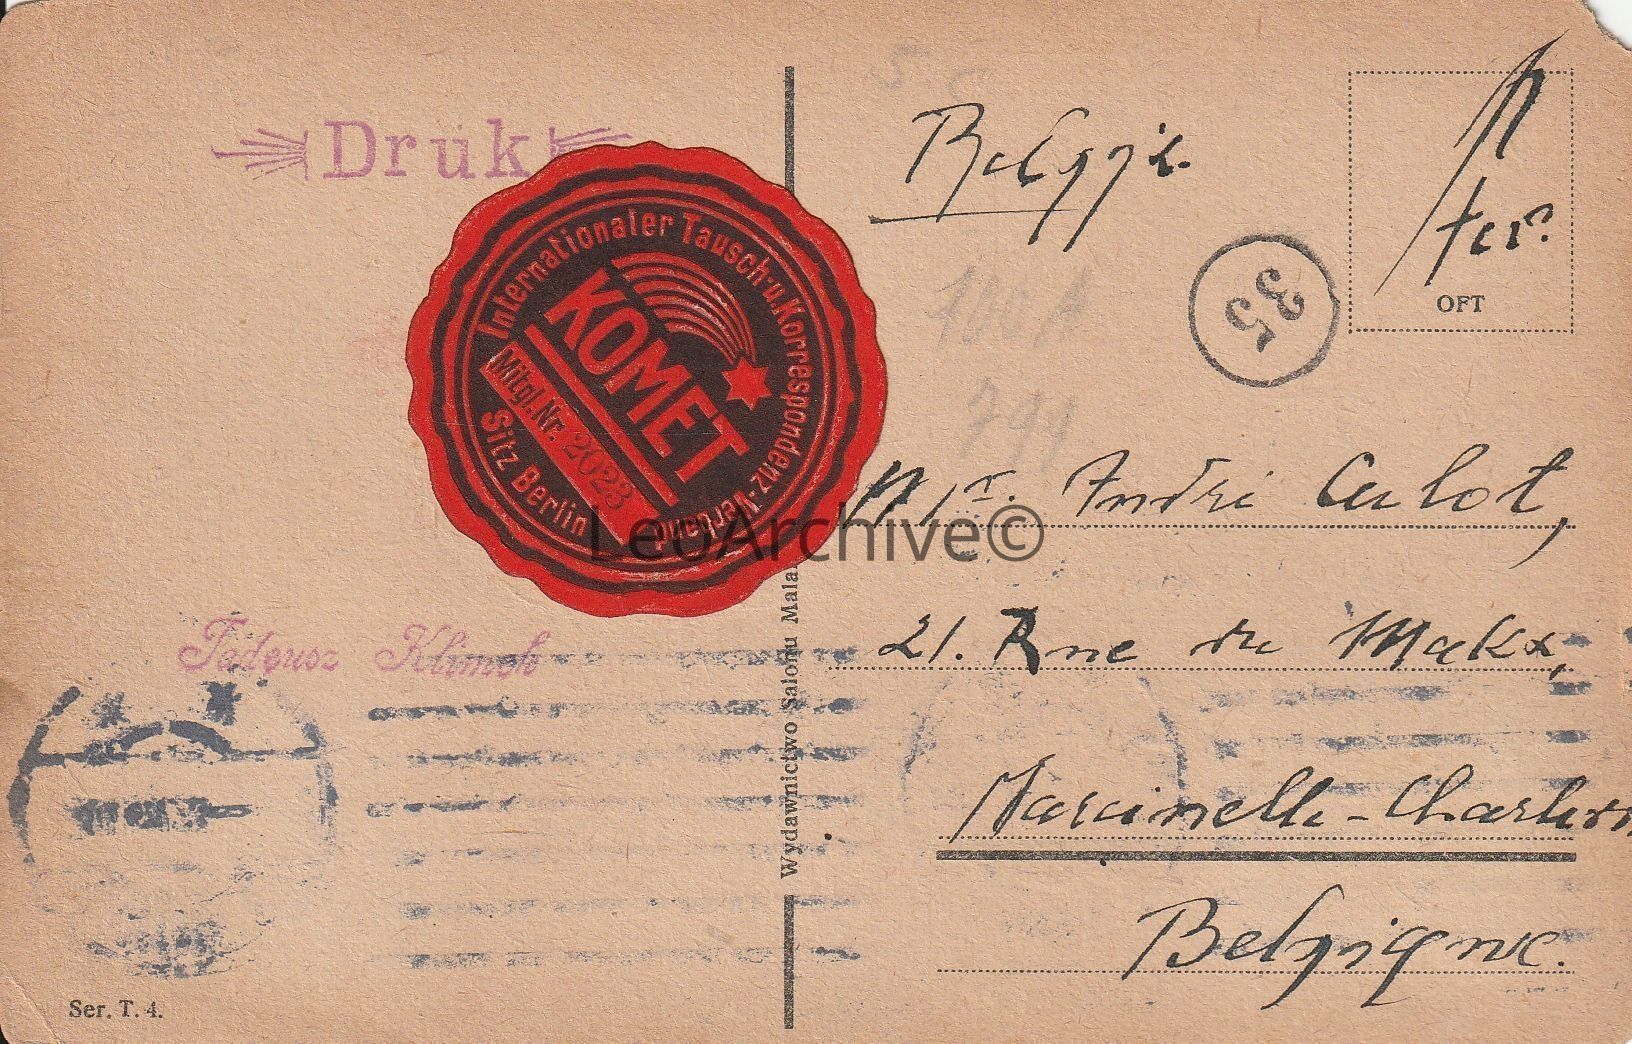 Druk
Internationaler Tausch- u. Korrespondenz-Verband
KOMET
Mitgl. Nr. 2023
Sitz Berlin
Tadeusz Klimek
Ser. T. 4.
Wydawnictwo Salonu Mala
Belgja.
35
OFT
Mr. André Culot,
21. Rue du
Marcinelle-Charler
Belgique.
LeoArchive©